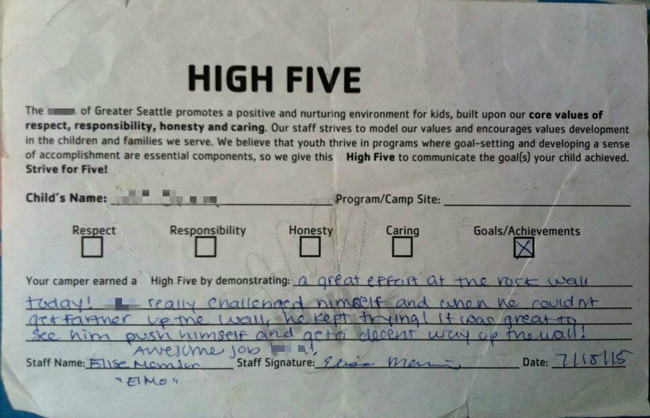 HIGH FIVE
The of Greater Seattle promotes a positive and nurturing environment for kids, built upon our core values of
respect, responsibility, honesty and caring. Our staff strives to model our values and encourages values development
in the children and families we serve. We believe that youth thrive in programs where goal-setting and developing a sense
of accomplishment are essential components, so we give this High Five to communicate the goal(s) your child achieved.
Strive for Five!
Child's Name: Program/Camp Site:
Respect Responsibility Honesty Caring Goals/Achievements
Your camper earned a High Five by demonstrating: a great effort at the rock wall
today! really challenged himself and when he couldnt
get farther up the wall, he kept trying! It was great to
see him push himself and get a decent way up the wall!
Awesome job !
Staff Name: Elise Staff Signature: Date: 7/15/15
"Elmo"